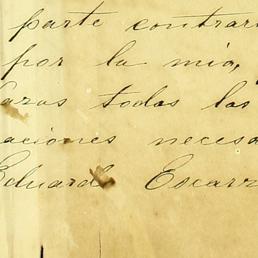 parte contrari
por la mia,
azas todas las
aciones necesa
Eduardo Escarz